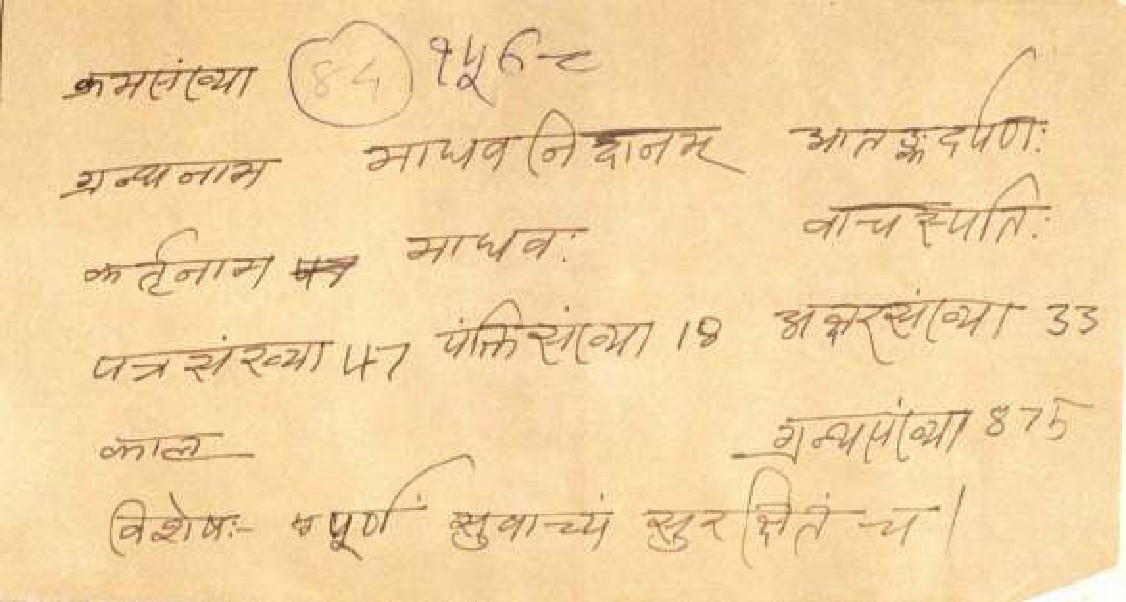 क्रमसंख्या 84 १५६-८
ग्रन्थनाम माधवनिदानम् आतङ्कदर्पणः
कर्तृनाम माधवः वाचस्पतिः
पत्रसंख्या 47 पंक्तिसंख्या 18 अक्षरसंख्या 33
काल ग्रन्थसंख्या 875
विशेषः- पूर्णं सुवाच्यं सुरक्षितं च।